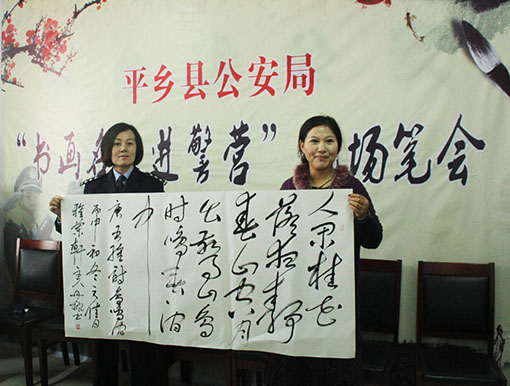 平乡县公安局
“书画 进警营” 场笔会
人闲桂花
落夜静
春山空月
出惊山鸟
时鸣春涧
中
唐王维诗鸟鸣涧
丙申初冬